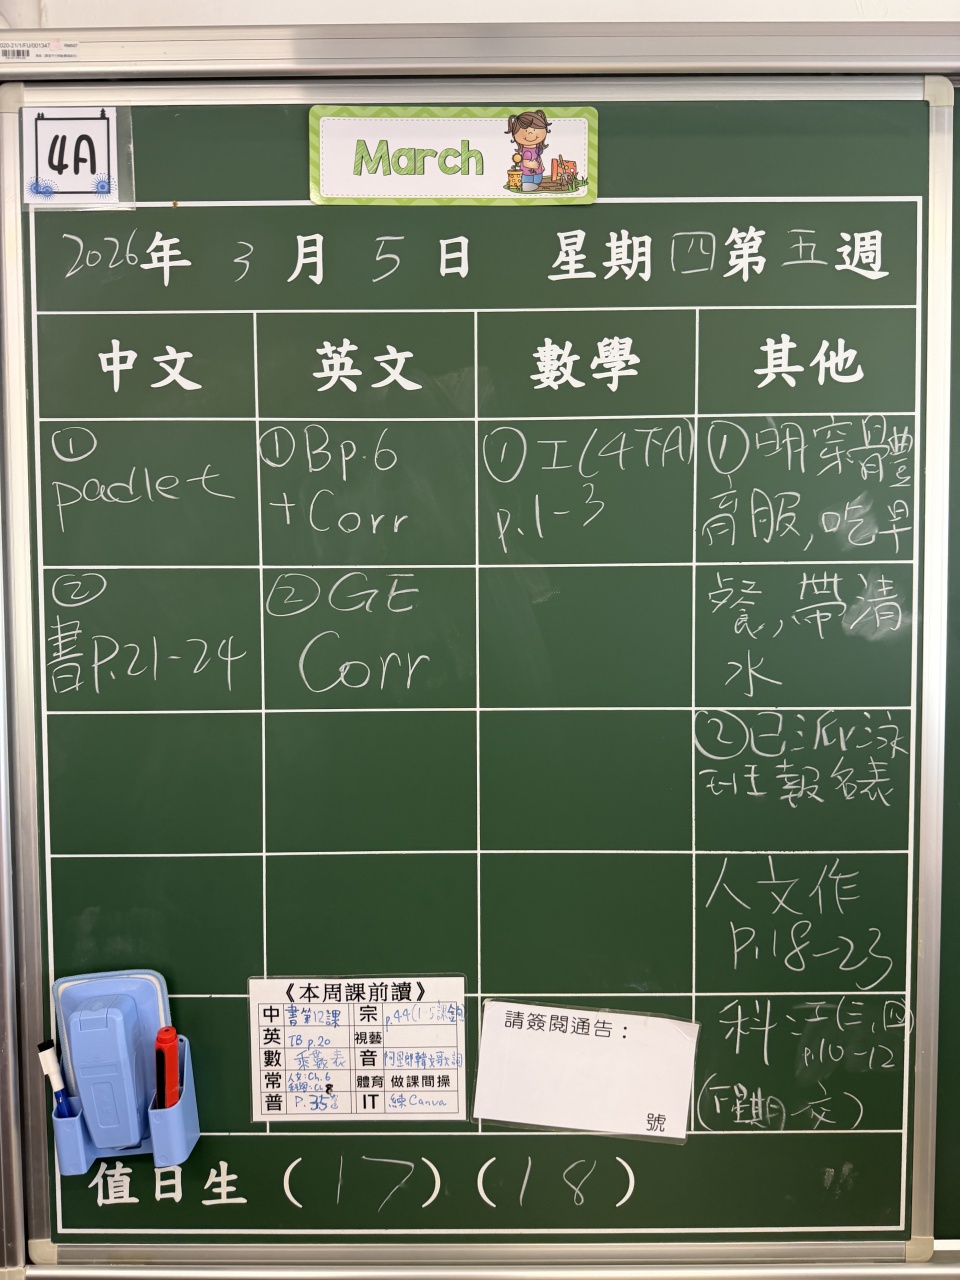 4A
March
2026年 3月 5日 星期四第五週
中文 英文 數學 其他
① padlet
② 書P.21-24
① Bp.6
+ Corr
② GE
Corr
① 工(4下A)
p.1-3
① 明穿體
育服,吃早
餐,帶清
水
② 已派泳
班報名表
人文作
P.18-23
科工(三,四)
p.10-12
(下星期一交)
《本周課前讀》
中 書第12課
宗 p.44(1-5課金句)
英 TB p.20
視藝
數 乘數表
音 阿里郎韓文歌詞
常 人文:Ch.6
科學:Ch.8
體育 做課間操
普 P.35
IT 練Canva
請簽閱通告:
號
值日生 (17)(18)